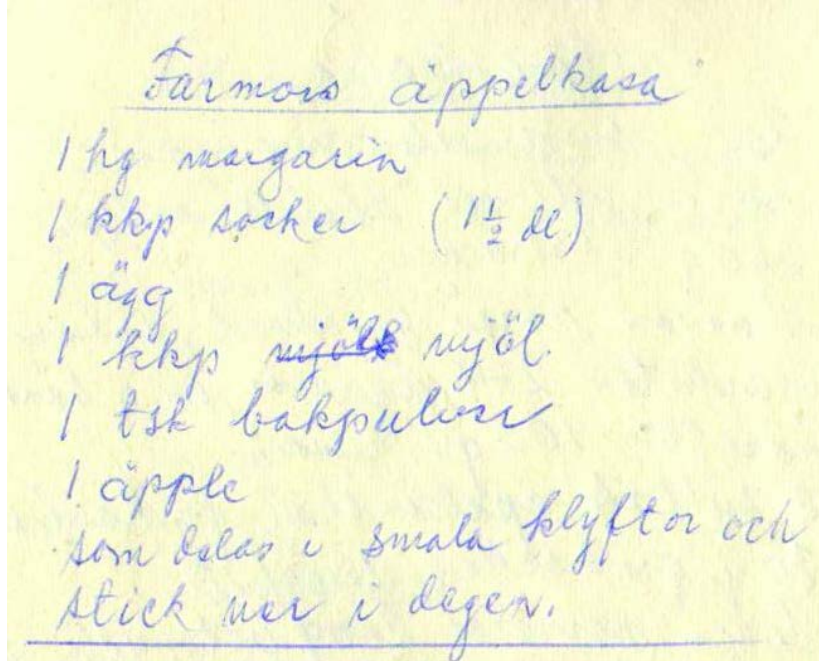 Farmors äppelkaka
1 hg margarin
1 kkp socker (1½ dl)
1 ägg
1 kkp mjölk mjöl
1 tsk bakpulver
1 äpple
som delas i smala klyftor och
stick ner i degen.